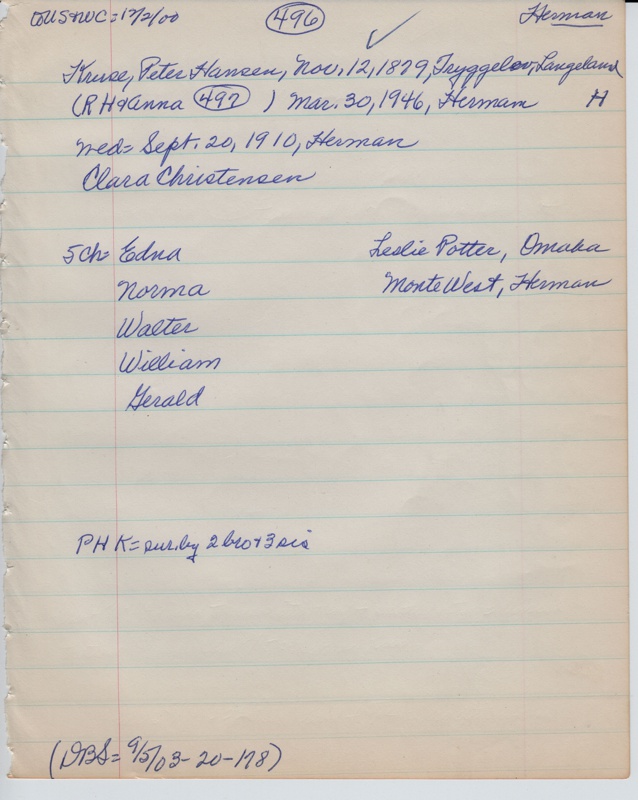 to US & WC = 12/2/00 (496) Herman
✓
Kruse, Peter Hansen, Nov. 12, 1879, Tryggelev, Langeland
(R H & Anna (497) ) Mar. 30, 1946, Herman H
wed = Sept. 20, 1910, Herman
Clara Christensen
5 ch = Edna Leslie Potter, Omaha
Norma Monte West, Herman
Walter
William
Gerald
P H K = sur. by 2 bro + 3 sis
(DBS = 9/5/03 - 20 - 178)